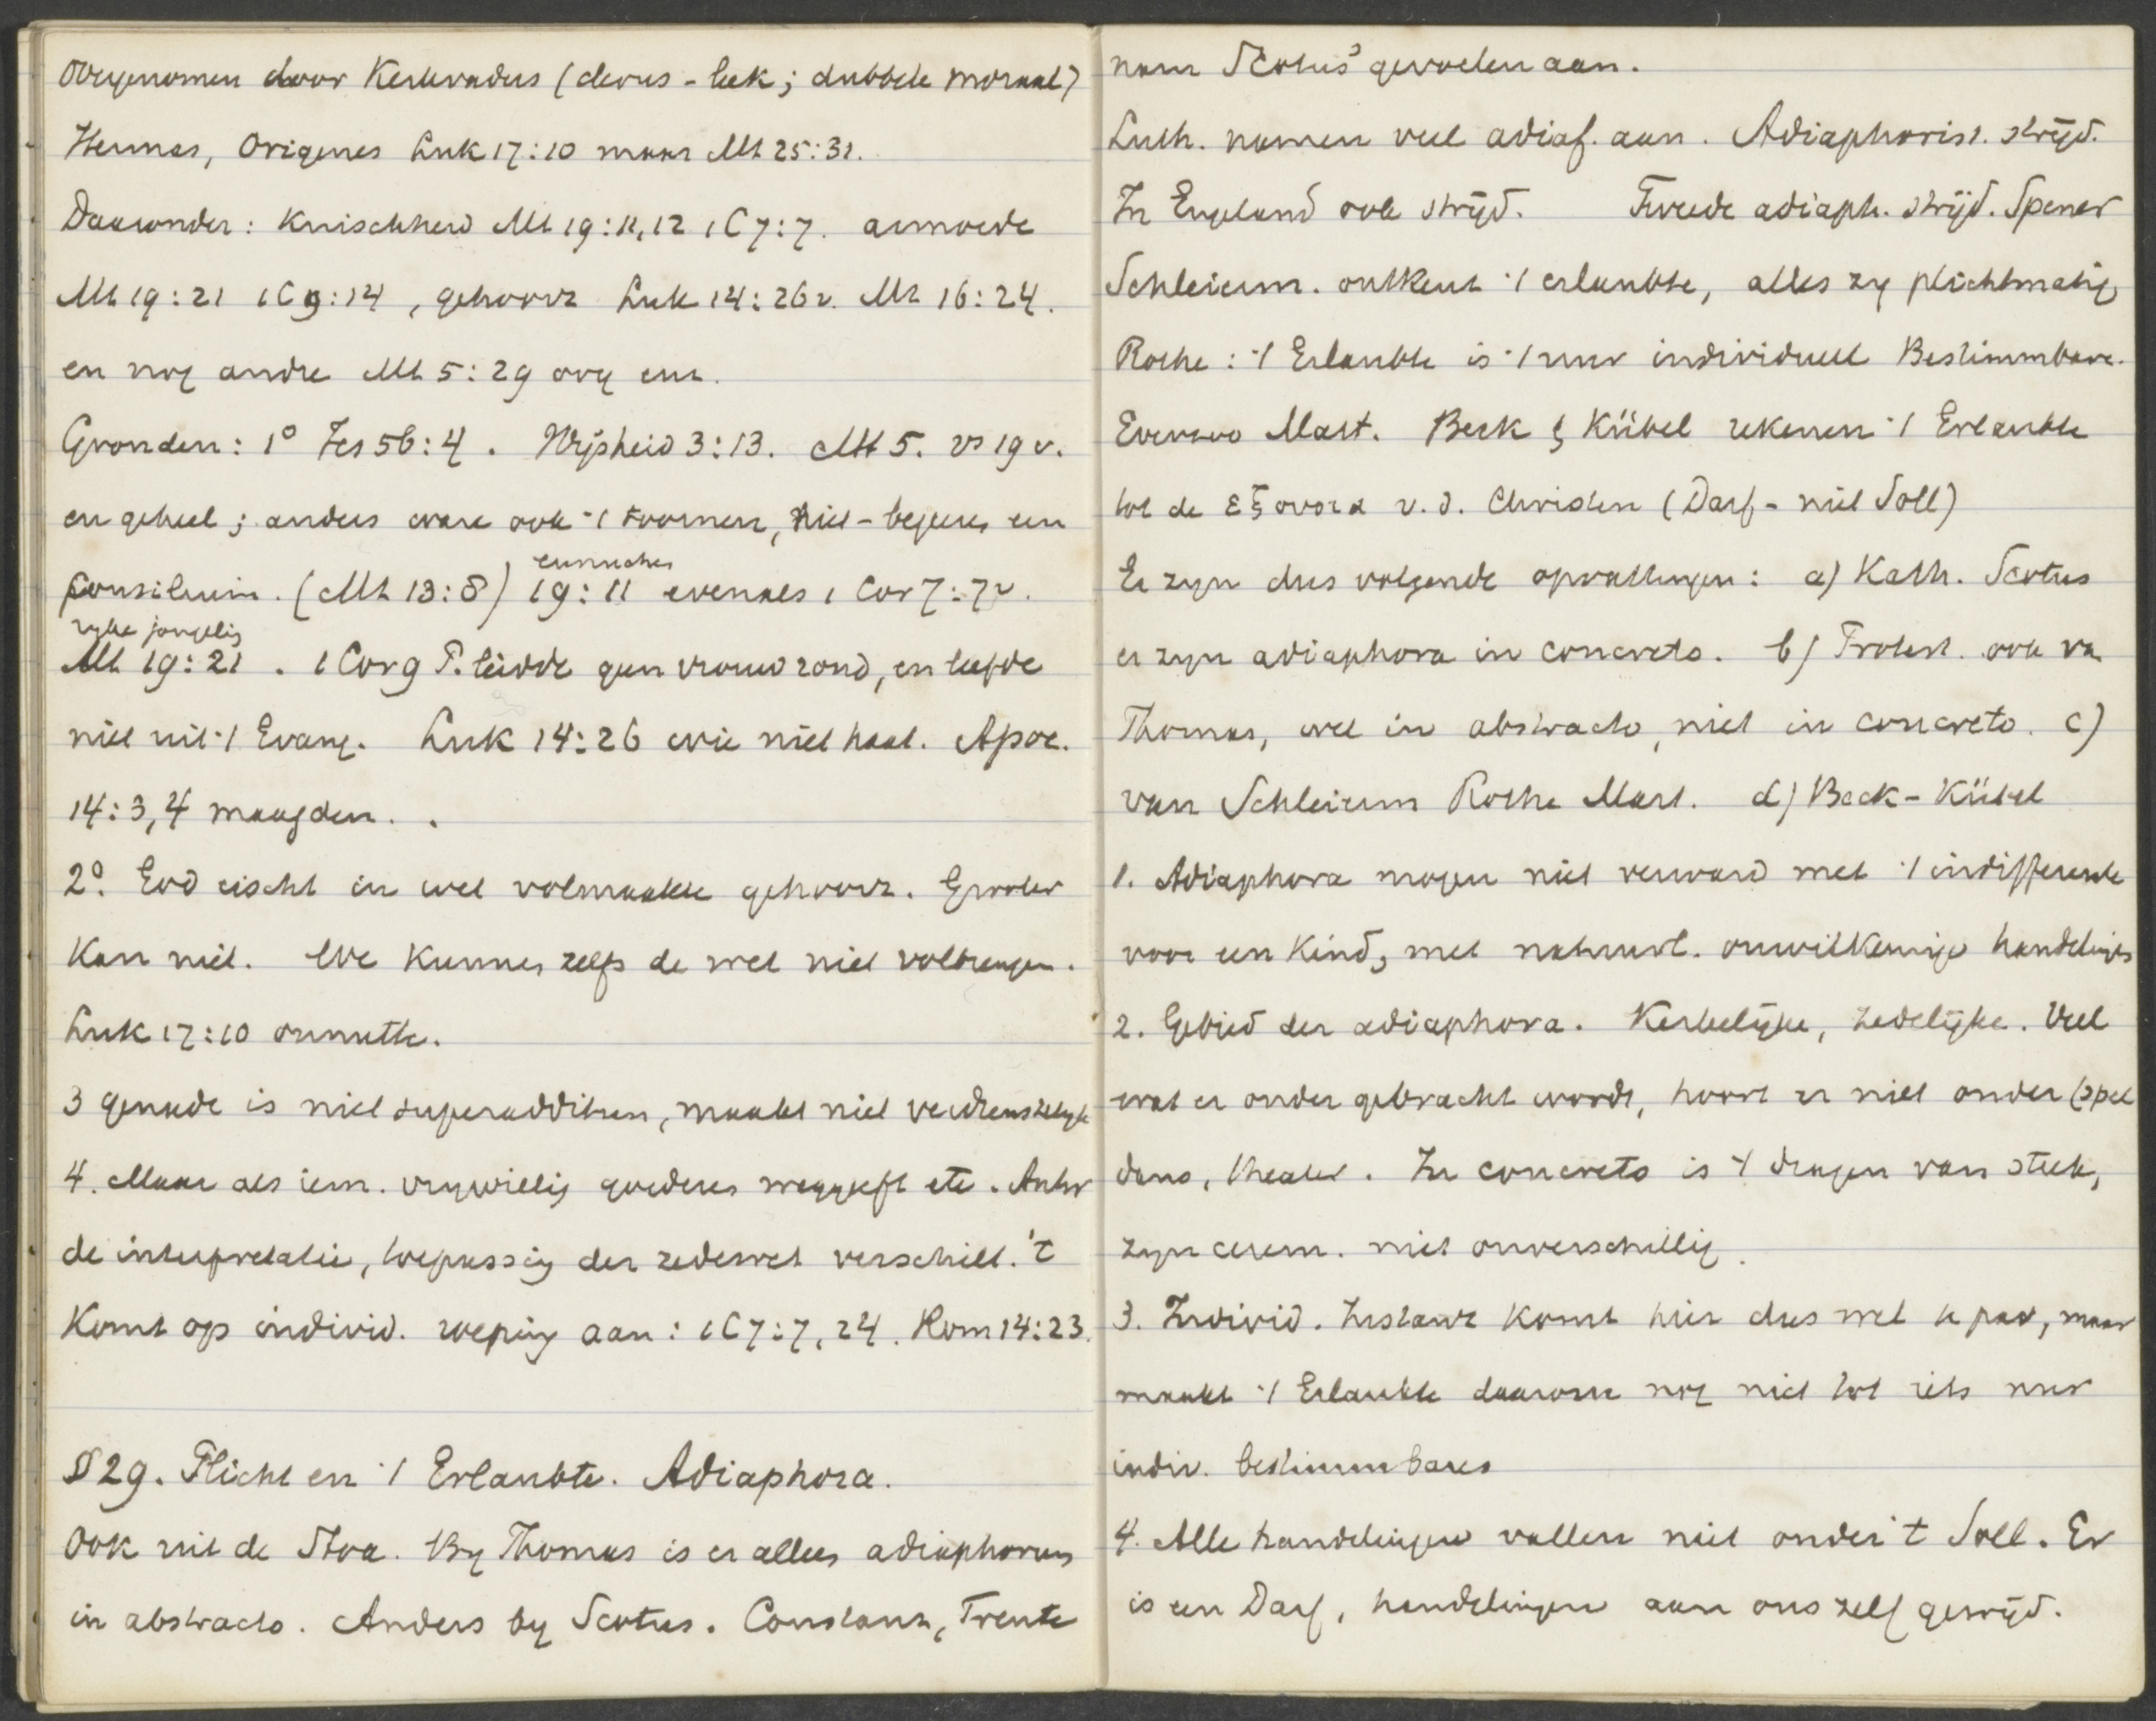 Overgenomen door Kerkvaders (clerus - leek; dubbele moraal)
Hermas, Origenes Luk 17:10 maar Mt 25:31.
Daaronder: Kuischheid Mt 19:11,12 1 C 7:7. armoede
Mt 19:21 1 C 9:14, gehoorz Luk 14:26v. Mt 16:24.
en nog andre Mt 5:29 oog enz.
Gronden: 1° Jes 56:4. Wijsheid 3:13. Mt 5. vs 19 v.
en geheel; anders ware ook 't toornen, niet-begeeren een
consilium. (Mt 13:8) 19:11 eunuchen evenals 1 Cor 7:7v.
Mt 19:21 ryke jongeling. 1 Cor 9 P. leidde geen vrouw rond, en leefde
niet uit 't Evang. Luk 14:26 wie niet haat. Apoc.
14:3,4 maagden..
2°. God eischt in wet volmaakte gehoorz. Grooter
kan niet. We kunnen zelfs de wet niet volbrengen.
Luk 17:10 onnutte.
3 genade is niet superadditum, maakt niet verdienstelyk
4. Maar als iem. vrywillig goederen weggeeft etc. Antw
de interpretatie, toepassing der zedewet verschilt. 't
Komt op individ. roeping aan: 1 C 7:7, 24. Rom 14:23.
§ 29. Plicht en 't Erlaubte. Adiaphora.
Ook uit de Stoa. By Thomas is er alleen adiaphorum
in abstracto. Anders by Scotus. Constanz, Trente
nam Scotus' gevoelen aan.
Luth. namen veel adiaf. aan. Adiaphorist. strijd.
In Engeland ook strijd. Tweede adiaph. strijd. Spener
Schleierm. ontkent 't erlaubte, alles zy plichtmatig
Rothe: 't Erlaubte is 't nur individuell Bestimmbare.
Evenzoo Mart. Beck & Kübel rekenen 't Erlaubte
tot de ἐξουσια v. d. Christen (Darf - niet Soll)
Er zyn dus volgende opvattingen: a) Kath. Scotus
er zyn adiaphora in concreto. b) Protest. ook van
Thomas, wel in abstracto, niet in concreto. c)
van Schleierm Rothe Mart. d) Beck-Kübel
1. Adiaphora mogen niet verward met 't indifferente
voor een kind, met natuurl. onwillekeurige handelingen
2. Gebied der adiaphora. Kerkelijke, zedelijke. Veel
wat er onder gebracht wordt, hoort er niet onder (spel
dans, theater. In concreto is 't dragen van steek,
zyn cerem. niet onverschillig.
3. Individ. toestand komt hier dus wel te pas, maar
maakt 't Erlaubte daarom nog niet tot iets nur
indiv. bestimmbares
4. Alle handelingen vallen niet onder 't Soll. Er
is een Darf, handelingen aan ons zelf gewijd.